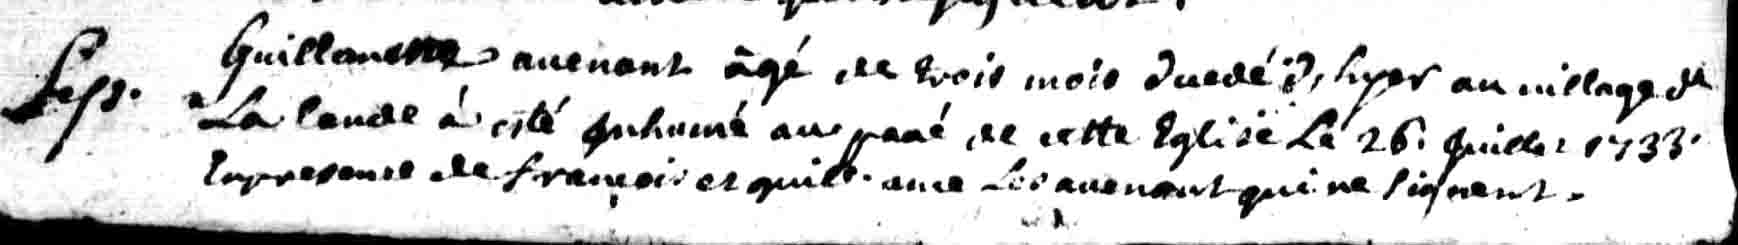 Sep. Guillemette auenant âgé de trois mois duedé d, hyer au uillage de
La lande à esté Inhumé au paué de cette Eglise Le 26. Juillet 1733.
En presence de françois et guill. ame Les auenant qui ne signent.